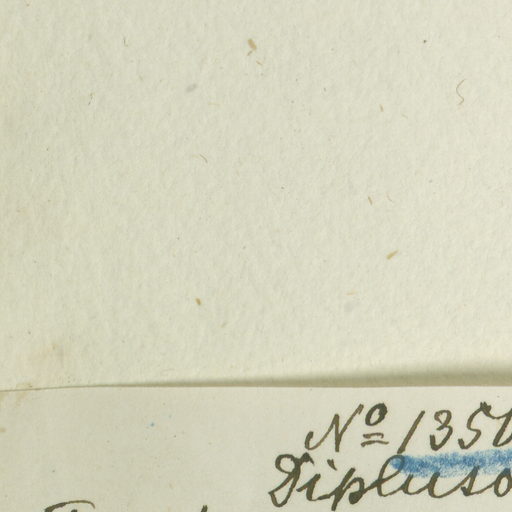 Nº 135
Dipluso